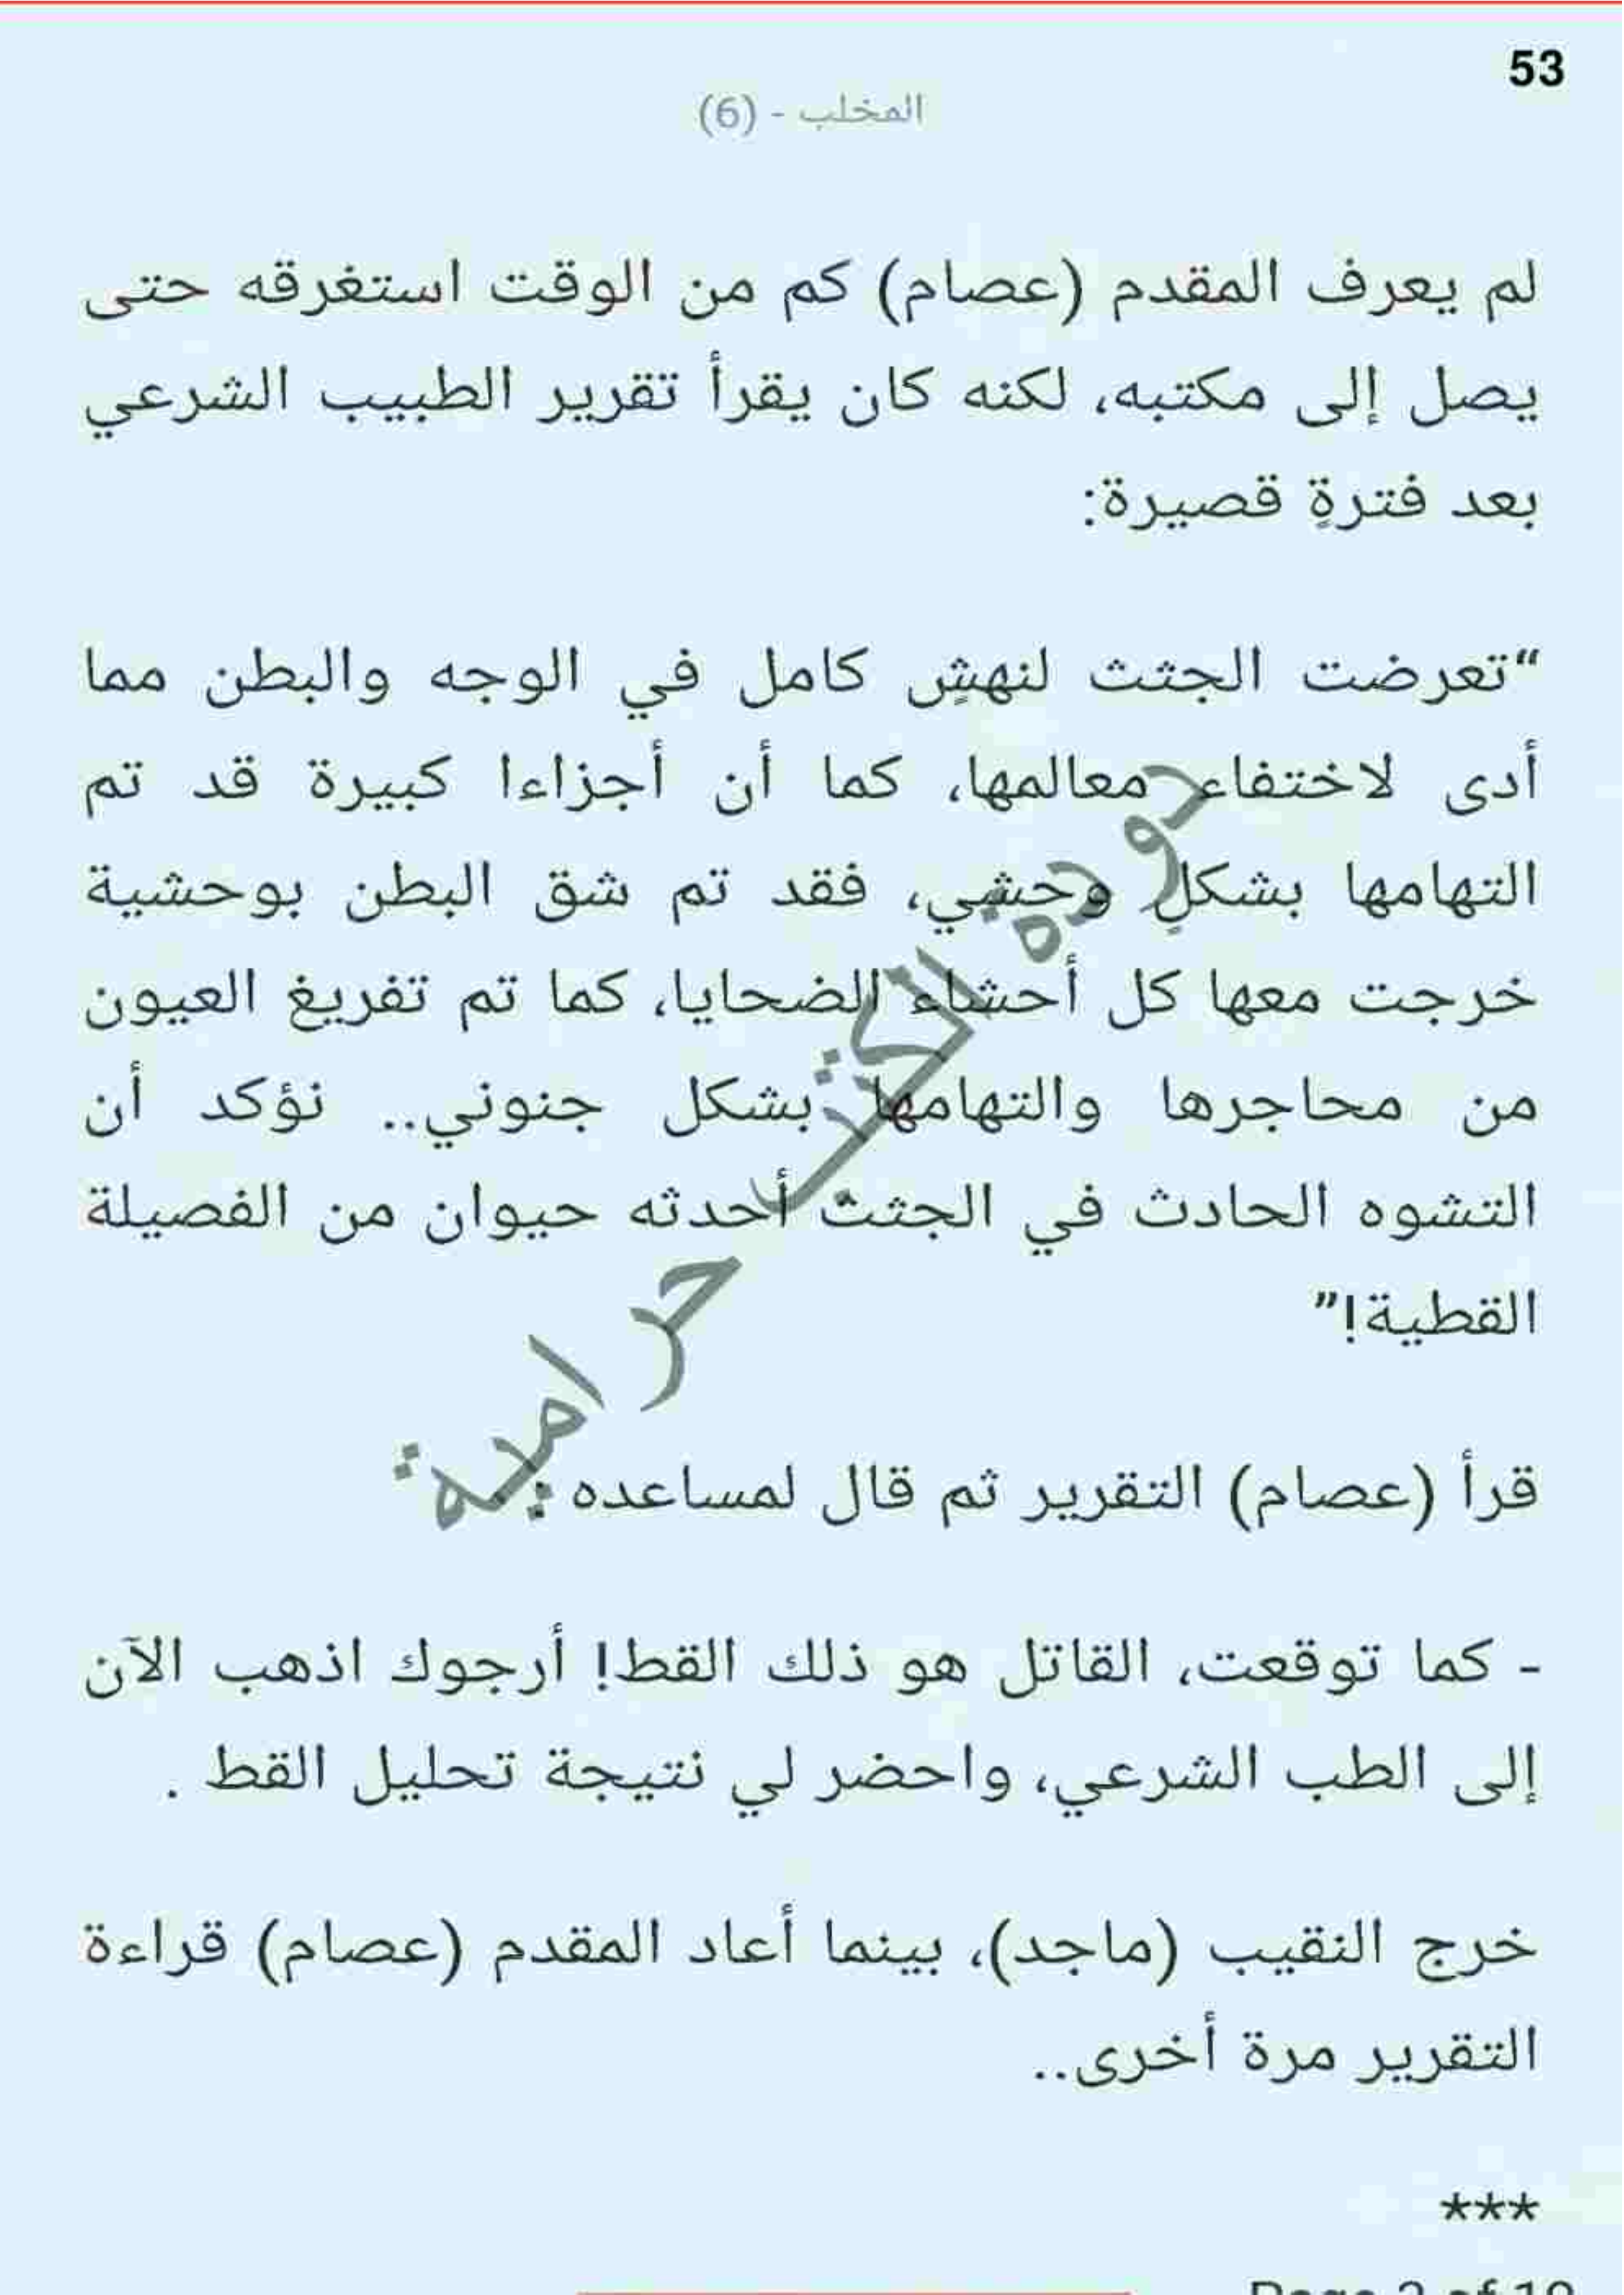 53
المخلب - (6)
لم يعرف المقدم (عصام) كم من الوقت استغرقه حتى
يصل إلى مكتبه، لكنه كان يقرأ تقرير الطبيب الشرعي
بعد فترةٍ قصيرة:
“تعرضت الجثث لنهشٍ كامل في الوجه والبطن مما
أدى لاختفاء معالمها، كما أن أجزاءا كبيرة قد تم
التهامها بشكلٍ وحشي، فقد تم شق البطن بوحشية
خرجت معها كل أحشاء الضحايا، كما تم تفريغ العيون
من محاجرها والتهامها بشكل جنوني.. نؤكد أن
التشوه الحادث في الجثث أحدثه حيوان من الفصيلة
القطية!”
قرأ (عصام) التقرير ثم قال لمساعده :
- كما توقعت، القاتل هو ذلك القط! أرجوك اذهب الآن
إلى الطب الشرعي، واحضر لي نتيجة تحليل القط .
خرج النقيب (ماجد)، بينما أعاد المقدم (عصام) قراءة
التقرير مرة أخرى..
***